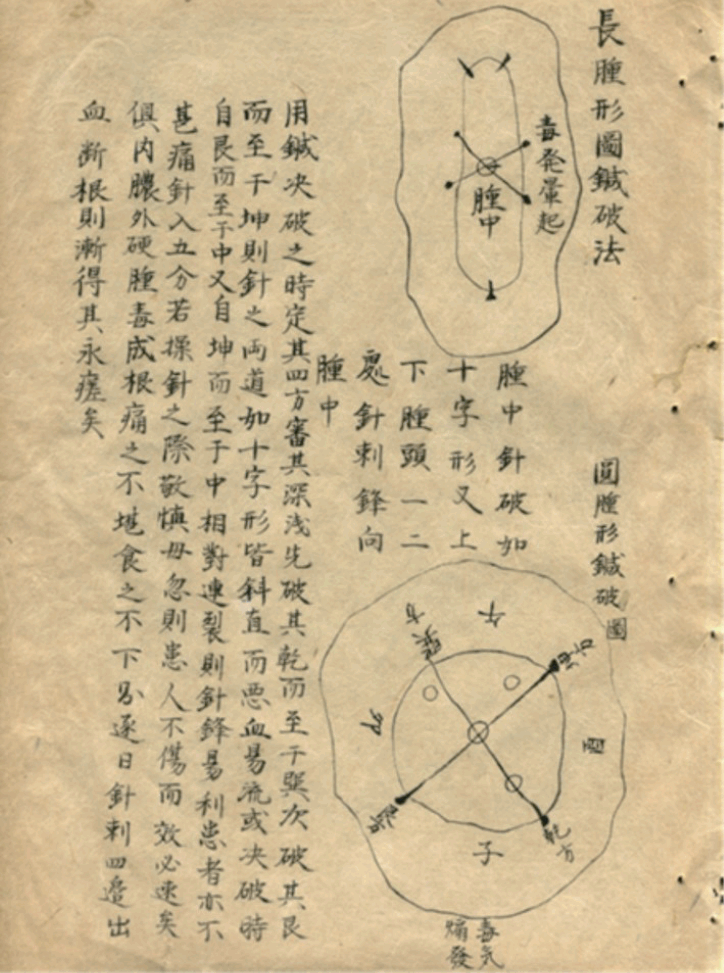 長腫形圖鍼破法
毒發暈起
腫中
腫中針破如
十字形又上
下腫頭一二
處針刺鋒向
腫中
圓腫形鍼破圖
午
坤方
巽方
酉
卯
艮方
乾方
子
毒気
焮發
用鍼决破之時定其四方審其深浅先破其乾而至于巽次破其艮
而至于坤則針之両道如十字形皆斜直而悪血易流或决破時
自艮而至于中又自坤而至于中相對連裂則針鋒易利患者亦不
甚痛針入五分若操針之際敬慎毋忽則患人不傷而效必速矣
俱内膿外硬腫毒成根痛之不堪食之不下另逐日針刺四邉出
血断根則漸得其永瘥矣